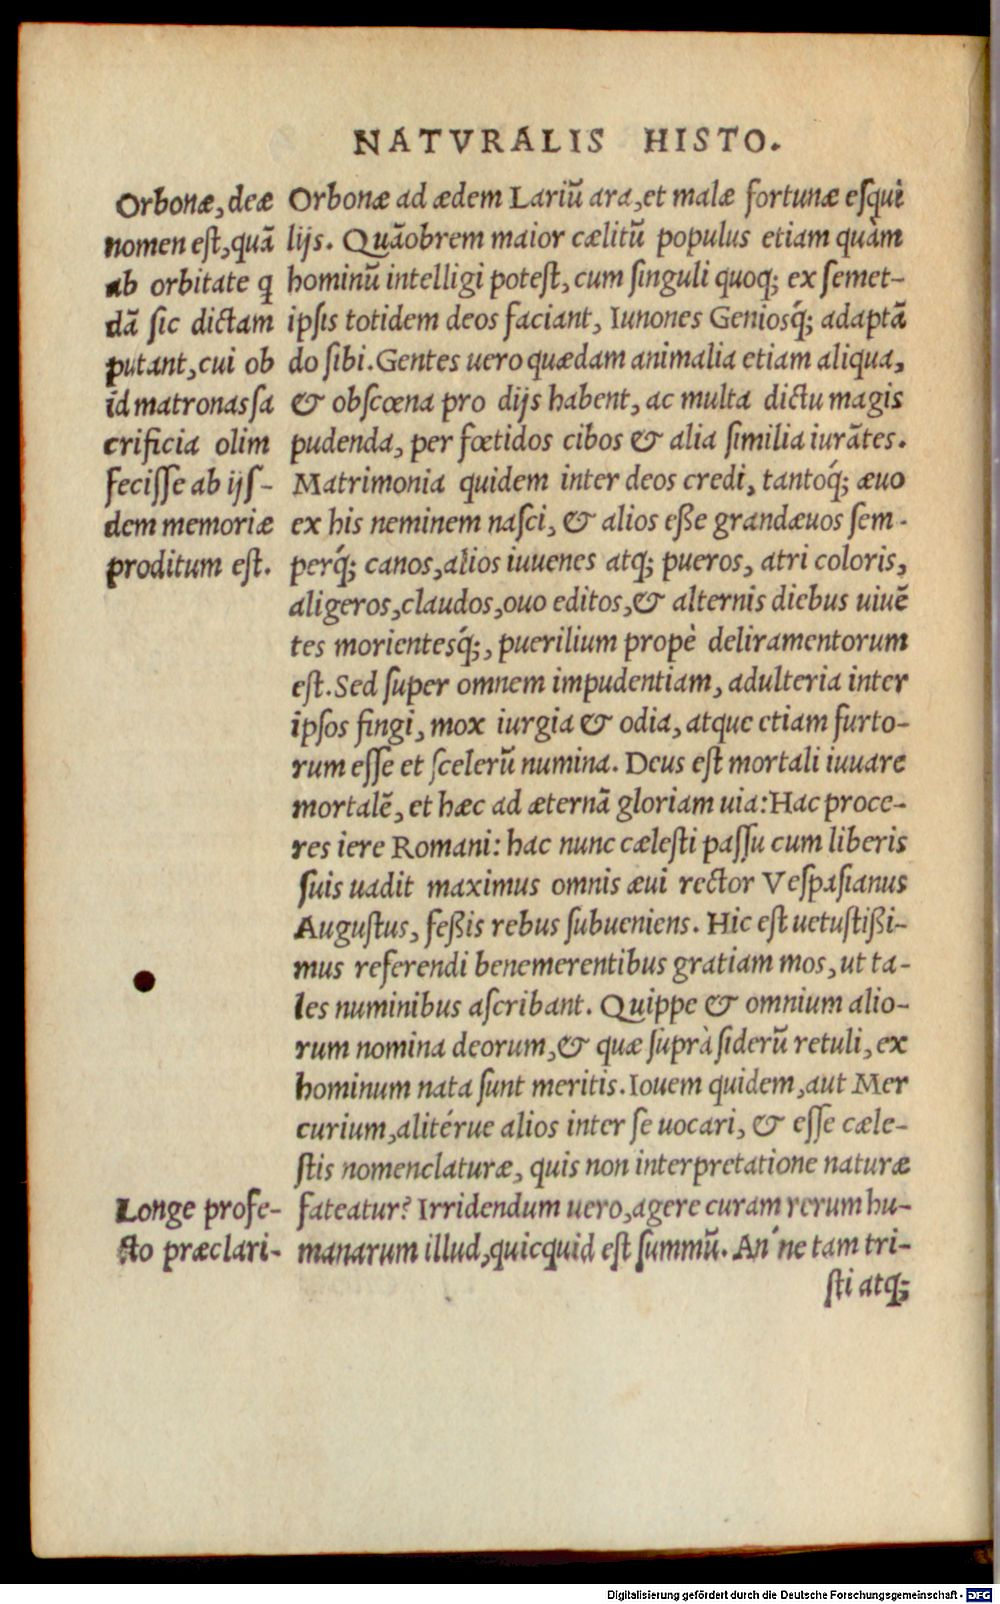 NATVRALIS HISTO.
Orbonæ, deæ
nomen est, quã
ab orbitate q
dã sic dictam
putant, cui ob
id matronas sa
crificia olim
fecisse ab ijs-
dem memoriæ
proditum est.
Orbonæ ad ædem Lariũ ara, et malæ fortunæ esqui
lijs. Quãobrem maior cælitũ populus etiam quàm
hominũ intelligi potest, cum singuli quoq; ex semet-
ipsis totidem deos faciant, Iunones Geniosq́; adaptã
do sibi. Gentes uero quædam animalia etiam aliqua,
& obscœna pro dijs habent, ac multa dictu magis
pudenda, per fœtidos cibos & alia similia iurãtes.
Matrimonia quidem inter deos credi, tantoq́; æuo
ex his neminem nasci, & alios eße grandæuos sem-
perq́; canos, alios iuuenes atq; pueros, atri coloris,
aligeros, claudos, ouo editos, & alternis diebus uiuẽ
tes morientesq́;, puerilium propè deliramentorum
est. Sed super omnem impudentiam, adulteria inter
ipsos fingi, mox iurgia & odia, atque etiam furto-
rum esse et scelerũ numina. Deus est mortali iuuare
mortalẽ, et hæc ad æternã gloriam uia: Hac proce-
res iere Romani: hac nunc cælesti passu cum liberis
suis uadit maximus omnis æui rector Vespasianus
Augustus, feßis rebus subueniens. Hic est uetustißi-
mus referendi benemerentibus gratiam mos, ut ta-
les numinibus ascribant. Quippe & omnium alio-
rum nomina deorum, & quæ suprà siderũ retuli, ex
hominum nata sunt meritis. Iouem quidem, aut Mer
curium, alitérue alios inter se uocari, & esse cæle-
stis nomenclaturæ, quis non interpretatione naturæ
fateatur? Irridendum uero, agere curam rerum hu-
manarum illud, quicquid est summũ. An' ne tam tri-
sti atq;
Longe profe-
cto præclari-
Digitalisierung gefördert durch die Deutsche Forschungsgemeinschaft - DFG